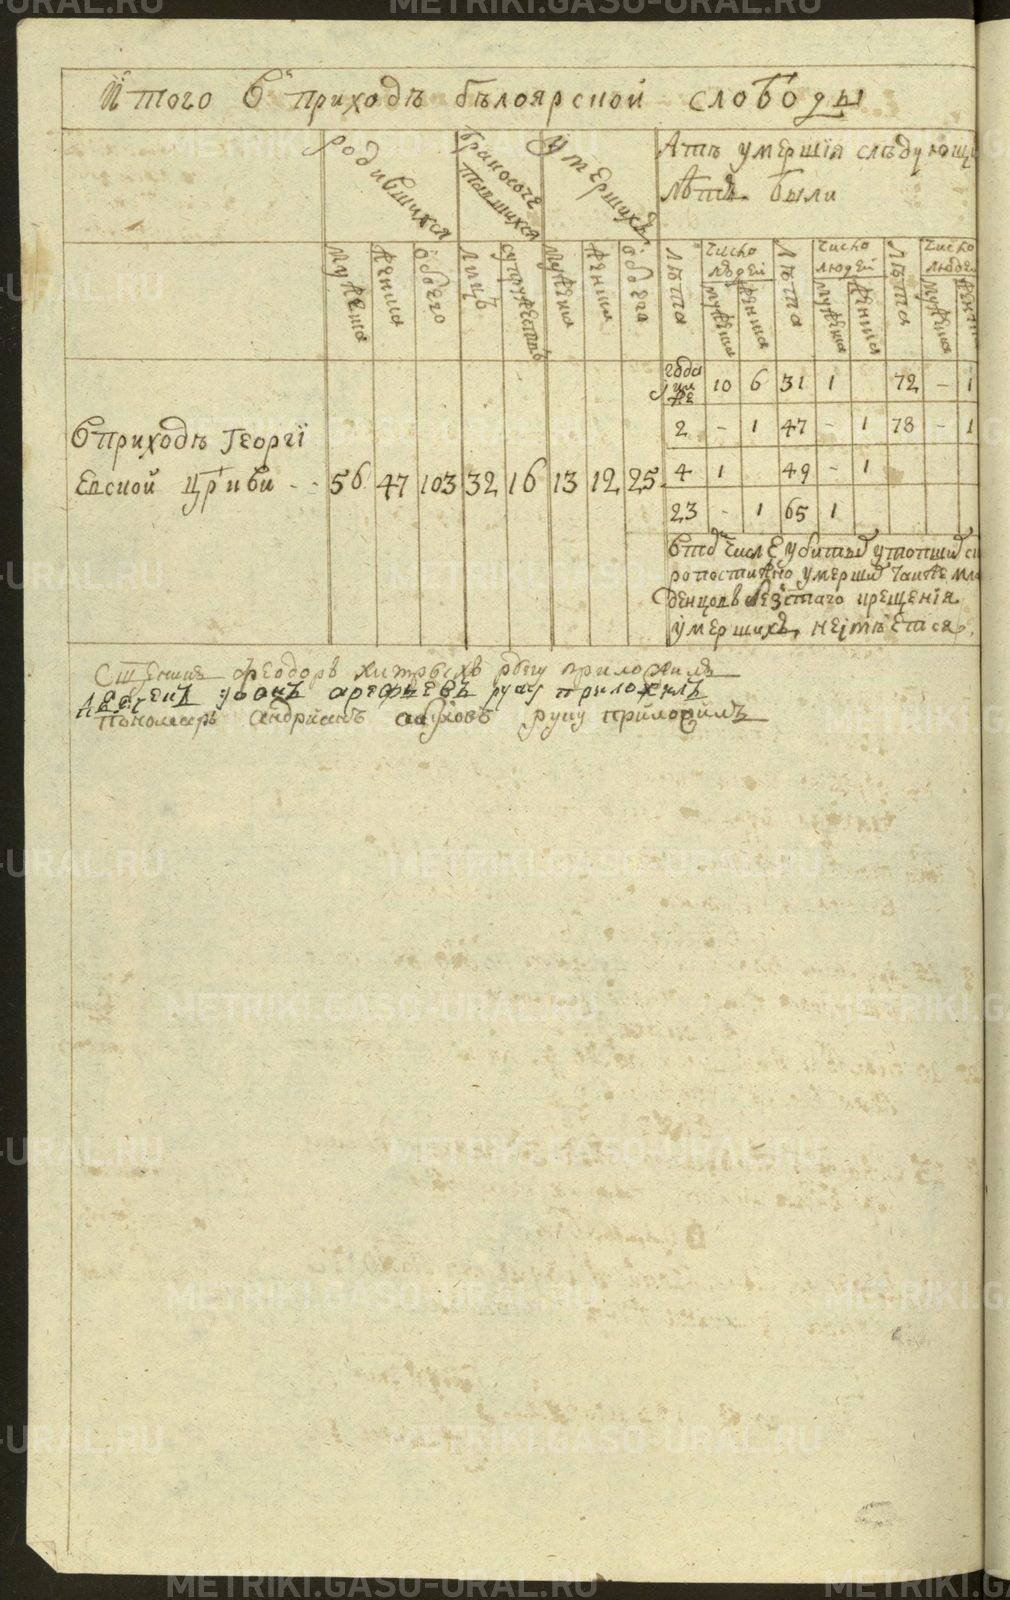 Итого в приходѣ бѣлоярской слободы
родившихся
бракосоче
тавшихся
умершихъ
А тѣ умершїя слѣдующи
лѣтъ были
мужеска
женска
обоего
лицъ
супружествъ
мужеска
женска
обоега
лѣта
число
людей
мужеска
женска
лѣта
число
людей
мужеска
женска
лѣта
число
людей
мужеска
женска
В приходѣ Георгї
евской цркви - - 56 47 103 32 16 13 12 25
года
10 6 31 1 72 - 1
2 - 1 47 - 1 78 - 1
4 1 49 - 1
23 - 1 65 1
В том числѣ убитых утопших ск
ропостижно умерших також мла
денцовъ без стаго крещенїя
умершихъ неімѣетася
Сщенникъ Феодоръ Хитрыхъ руку приложилъ
Иоанъ Арефьевъ руку приложилъ
Пономарь Андрианъ руку приложилъ
METRIKI.GASO-URAL.RU